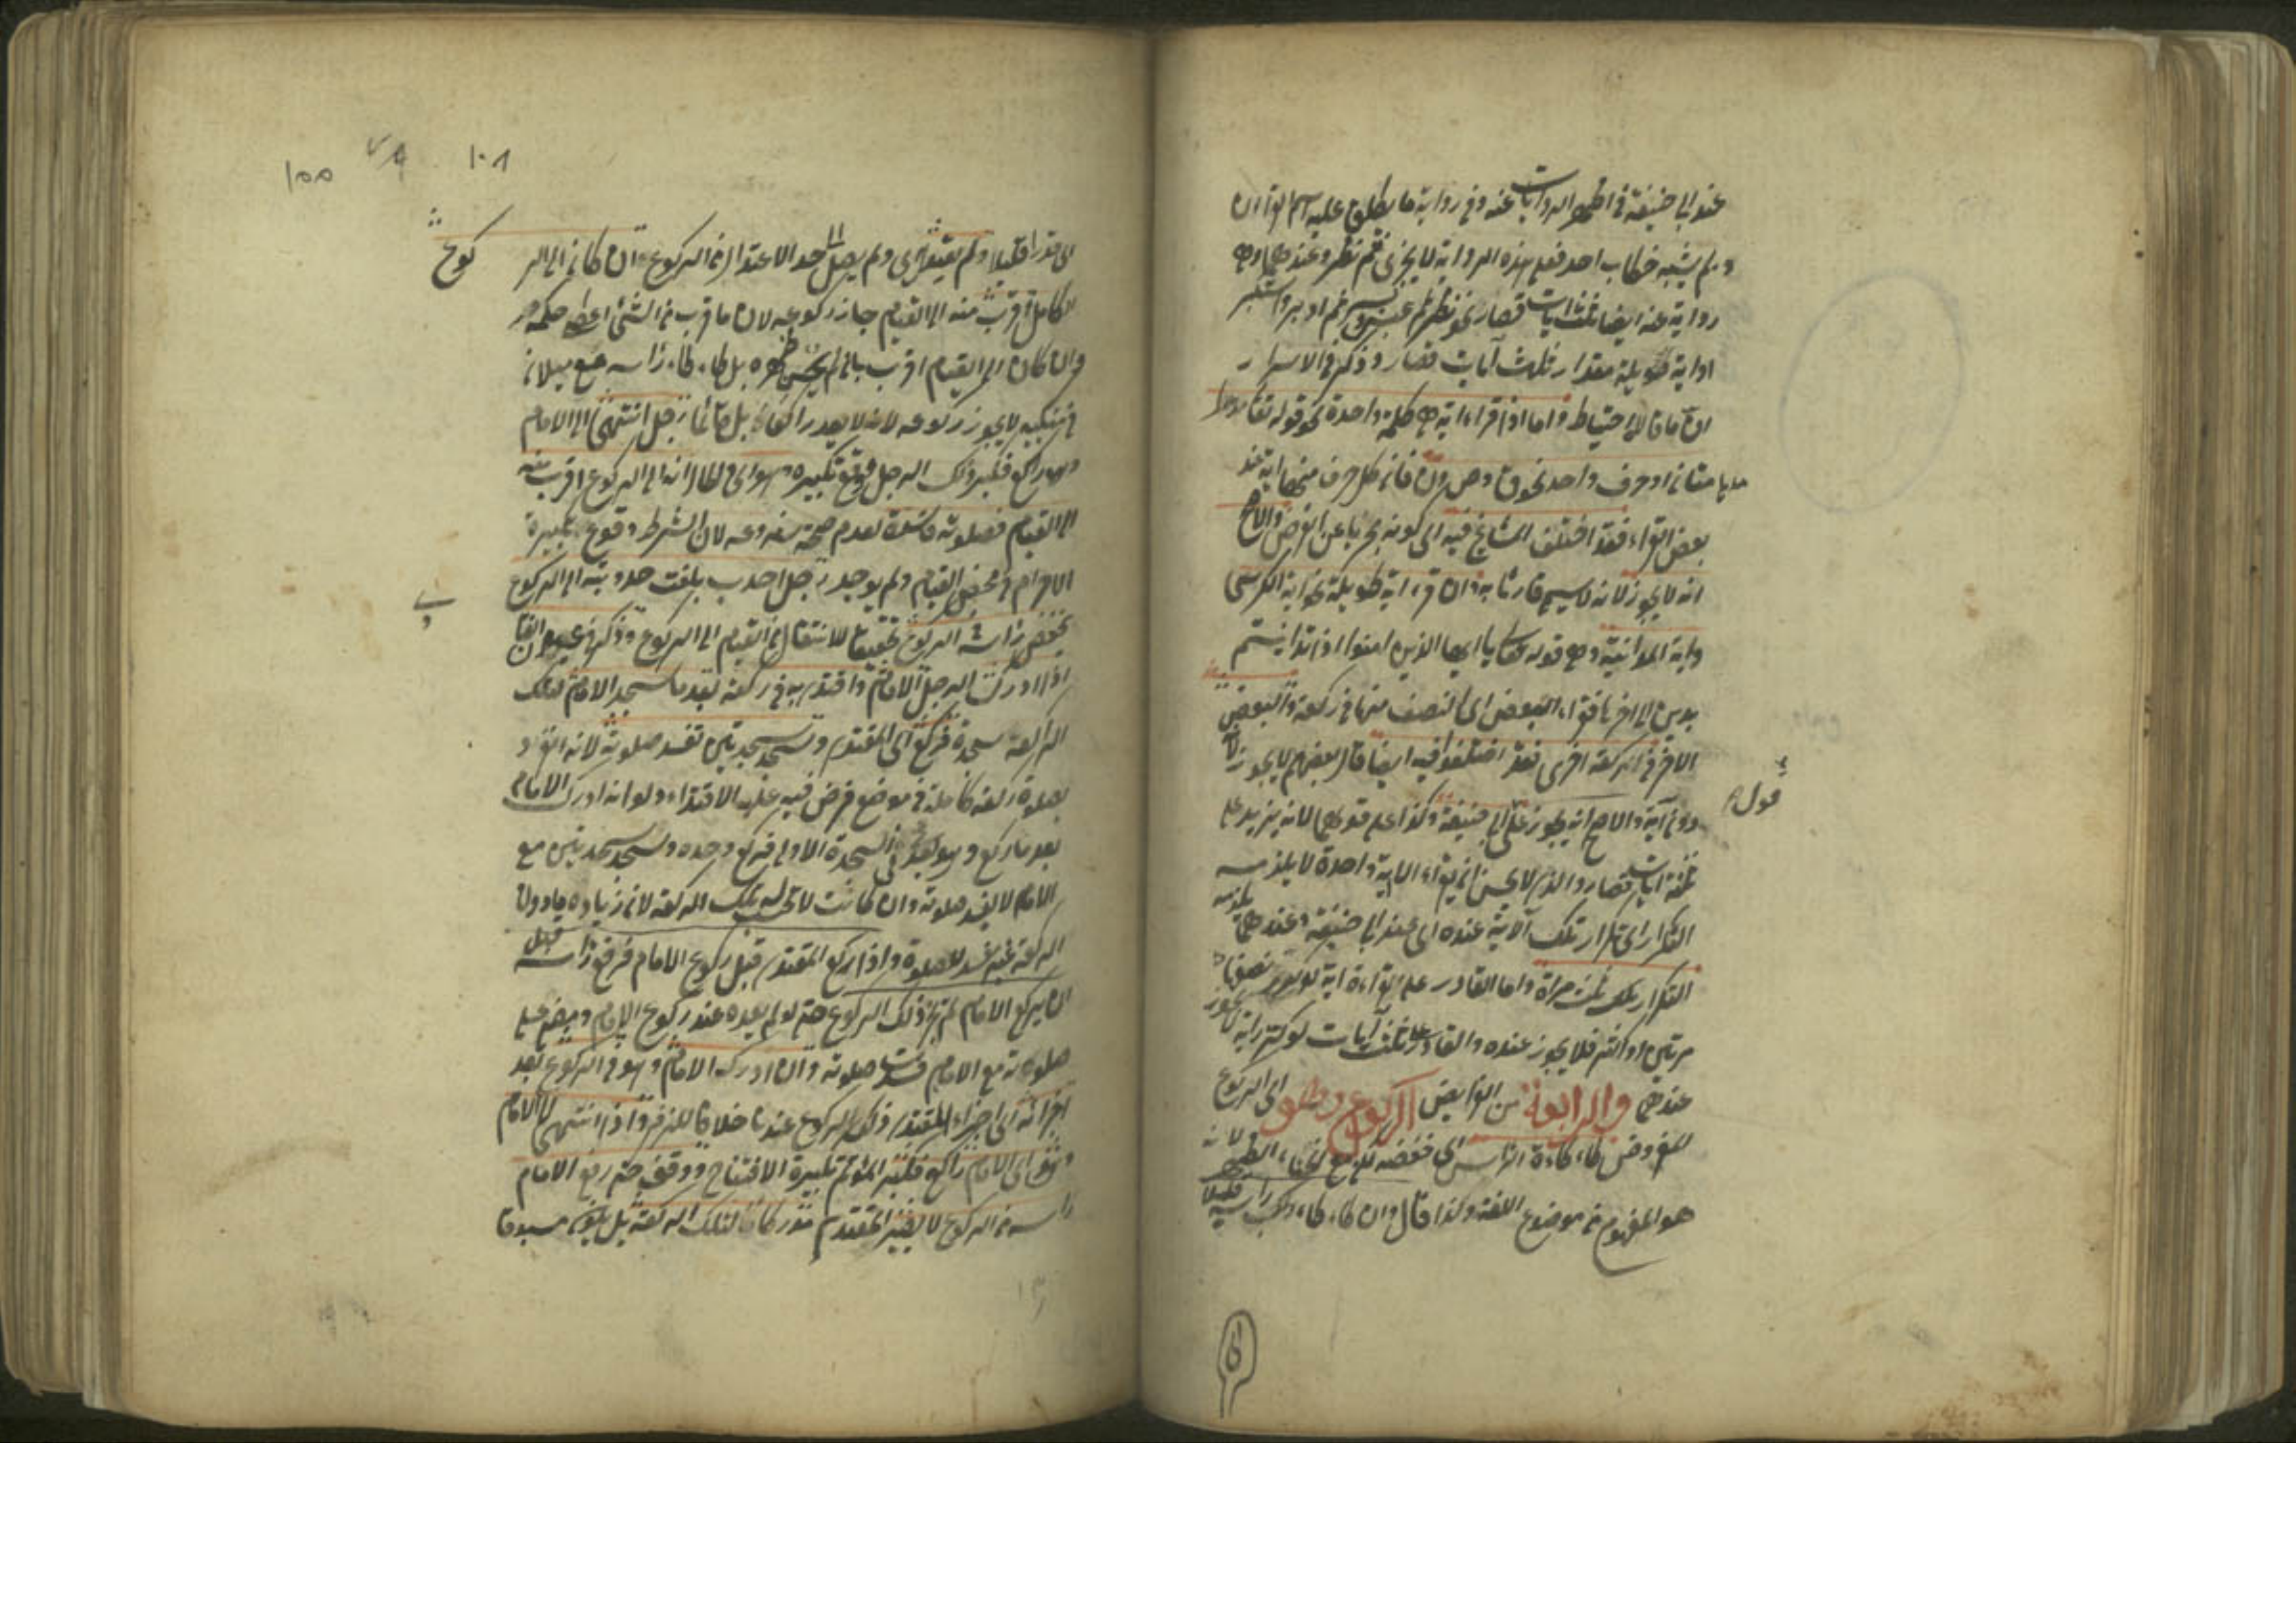 عند ابى حنيفة فى اظهر الروايات عنه وفى رواية ما يطلق عليه اسم القرآن
ولم يشبه خطاب احد فعلى هذه الرواية لا يجزى ثم نظر وعندهما وهى
رواية عنه ايضا ثلث آيات قصار نحو ثم نظر ثم عبس وبسر ثم ادبر واستكبر
او اية طويلة مقدار ثلث آيات قصار وذكر فى الاسرار
ان ما قالاه احتياط واما اذا قراء اية هى كلمة واحدة نحو قوله تعالى
مدهامتان او حرف واحد نحو ق و ص و ن فان كل حرف منها اية عند
بعض القراء فقد اختلف المشايخ فيه اى كونه مجزيا عن الفرض والاصح
انه لا يجوز لانه لا يسمى قارئا به وان قراء اية طويلة نحو اية الكرسى
واية المداينة وهى قوله تعالى يا ايها الذين امنوا اذا تداينتم
بدين الى اخرها فقراء البعض اى النصف منها فى ركعة والبعض
الاخر فى الركعة اخرى فقد اختلفوا فيه ايضا قال بعضهم لا يجوز لانه
قول
دون آية والاصح انه يجوز على ابى حنيفة وكذا على قولهما لانه يزيد على
ثلثة ايات قصار والذى لا يحسن ان يقراء الا اية واحدة لا يلزمه
التكرار اى تكرار تلك الآية عنده اى عند ابى حنيفة وعندهما يلزمه
التكرار تلك ثلث مرات واما القادر على قراءة اية لو كرر نصفها
مرتين او اكثر فلا يجوز عنده والقادر على ثلث آيات لو كرر اية لا يجوز
عندهما والرابعة من الفرايض الركوع وهو اى الركوع
المفروض طاءطاءة الراس اى خفضه مع انحناء الظهر لانه
هو المفهوم من موضوع اللغة وكذا قال وان طاءطاء راسه قليلا
اى قدرا قليلا ولم يعتدل اى ولم يصل الى حد الاعتدال فى الركوع ان كان الى الركوع
الكامل اقرب منه الى القيام جاز ركوعه لان ما قرب من الشئ اعطى حكمه
وان كان الى القيام اقرب بان لم يحن ظهره بل طاءطاء راسه مع ميلان
فى منكبيه لا يجوز ركوعه لانه لا يعد راكعا بل قائما رجل انتهى الى الامام
وهو راكع فكبر ذلك الرجل فوقع تكبيره وهو اى والحال انه الى الركوع اقرب منه
الى القيام فصلوته فاسدة لعدم صحة شروعه لان الشرط وقوع تكبيرة
الاحرام فى محض القيام ولم يوجد رجل احدب بلغت حدوبته الى الركوع
يخفض راسه فى الركوع تحقيقا للانتقال من القيام الى الركوع وذكر فى عيون
اذا ادرك الرجل الامام واقتدى به فى ركعة بعد ما سجد الامام لتلك
الركعة سجدة فركع اى المقتدى وسجد سجدتين تفسد صلوته لانه انفرد
بصلوة ركعة كاملة فى موضع فرض فيه عليه الاقتداء ولو انه ادرك الامام
بعد ما ركع وهو بعد فى السجدة الاولى فركع وحده وسجد سجدتين مع
الامام لا تفسد صلوته وان كانت لا تحسب له تلك الركعة لان زيادة ما دون
الركعة غير مفسد للصلوة واذا ركع المقتدى قبل ركوع الامام فرفع راسه قبل
ان يركع الامام لم يجز ذلك الركوع حتى لو لم يعده عند ركوع الامام ومضى على
صلوته مع الامام فسدت صلوته وان ادركه الامام وهو فى الركوع بعد
اجزائه اى اجزاء المقتدى ذلك الركوع عندنا خلافا لزفر واذا انتهى الى الامام
وهو اى الامام راكع فكبر المؤتم تكبيرة الافتتاح ووقف حتى رفع الامام
راسه من الركوع لا يصير المقتدى مدركا لتلك الركعة بل يكون مسبوقا